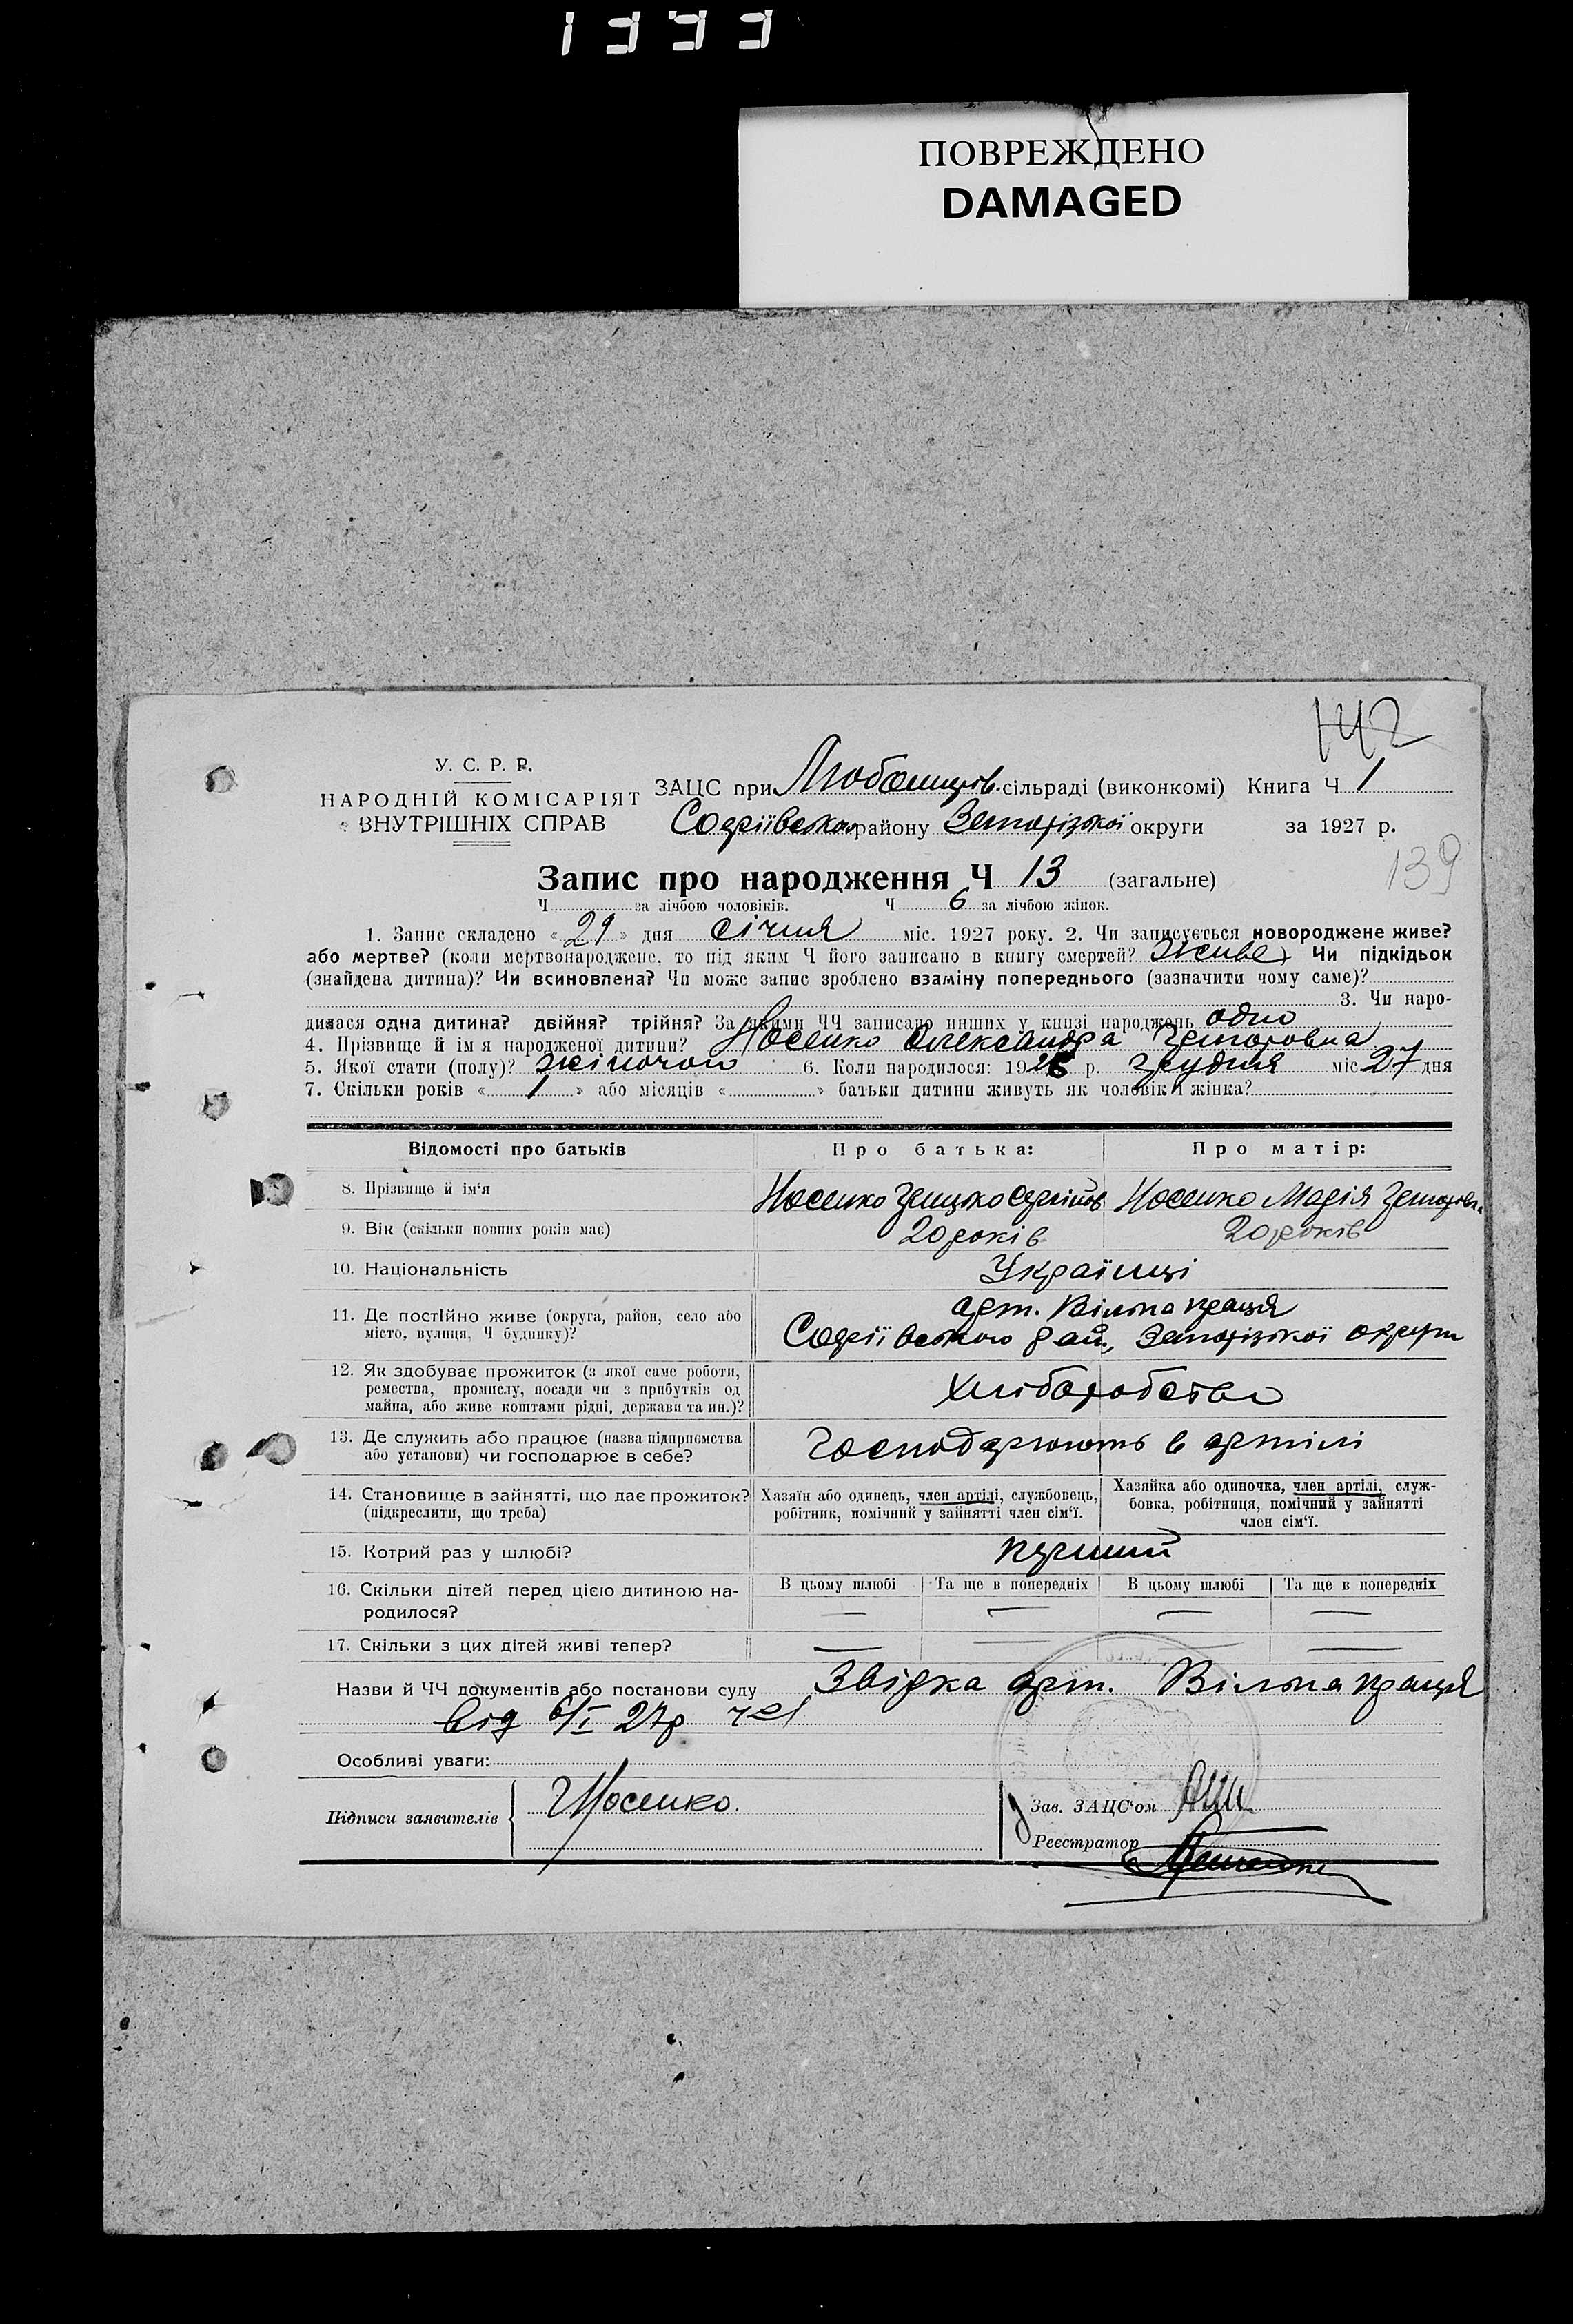 1333
ПОВРЕЖДЕНО
DAMAGED
142
У. С. Р. Р.
НАРОДНІЙ КОМІСАРІЯТ
ВНУТРІШНІХ СПРАВ
ЗАЦС при Любашів. сільраді (виконкомі) Книга Ч 1
Софіївського району Запорізької округи за 1927 р.
139
Запис про народження Ч 13 (загальне)
Ч за лічбою чоловіків. Ч 6 за лічбою жінок.
1. Запис складено «29» дня січня міс. 1927 року. 2. Чи записується новороджене живе?
або мертве? (коли мертвонароджене, то під яким Ч його записано в книгу смертей? живе) Чи підкідьок
(знайдена дитина)? Чи всиновлена? Чи може запис зроблено взаміну попереднього (зазначити чому саме)?
3. Чи наро-
дилася одна дитина? двійня? трійня? За якими ЧЧ записано инших у книзі народжень одно
4. Прізвище й ім я народженої дитини? Носенко Олександра
5. Якої стати (полу)? жіночои 6. Коли народилося: 1926 р. грудня міс 27 дня
7. Скільки років «1» або місяців « » батьки дитини живуть як чоловік і жінка?
Відомості про батьків
Про батька:
Про матір:
8. Прізвище й ім‘я
Носенко Сергійов
Носенко Марія
9. Вік (скільки повних років має)
20 років
20 років
10. Національність
Українці
11. Де постІйно живе (округа, район, село або
місто, вулиця, Ч будинку)?
арт. Вільна праця
Софіївського рай., Запорізкої округи
12. Як здобуває прожиток (з якої саме роботи,
ремества, промислу, посади чи з прибутків од
майна, або живе коштами рідні, держави та ин.)?
Хліборобство
13. Де служить або працює (назва підприємства
або установи) чи господарює в себе?
Господарюють в артілі
14. Становище в зайнятті, що дає прожиток?
(підкреслити, що треба)
Хазяїн або одинець, член артілі, службовець,
робітник, помічний у зайнятті член сім‘ї.
Хазяйка або одиночка, член артілі, служ-
бовка, робітниця, помічний у зайнятті
член сім‘ї.
15. Котрий раз у шлюбі?
перший
16. Скільки дітей перед цією дитиною на-
родилося?
В цьому шлюбі
Та ще в попередніх
В цьому шлюбі
Та ще в попередніх
— — — —
17. Скільки з цих дітей живі тепер?
— — — —
Назви й ЧЧ документів або постанови суду Звідка арт. Вільна праця
від 6/I 27р ч 1
Особливі уваги:
Підписи заявителів
Носенко.
Зав. ЗАЦС‘ом
Реєстратор